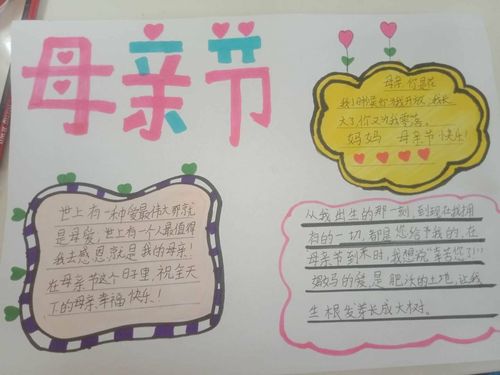 母亲节
母亲 你是在
我小时候你为我开放,我长
大了你又为我零落。
妈妈 母亲节快乐!
世上有一种爱最伟大那就
是母爱,世上有一个人最值得
我去感恩就是我的母亲!
在母亲节这个日子里,祝全天
下的母亲幸福快乐!
从我出生的那一刻,到现在我拥
有的一切,都是您给予我的,在
母亲节到来时,我想说"辛苦您了!"
妈妈的爱是肥沃的土地,让我
生根发芽长成大树。